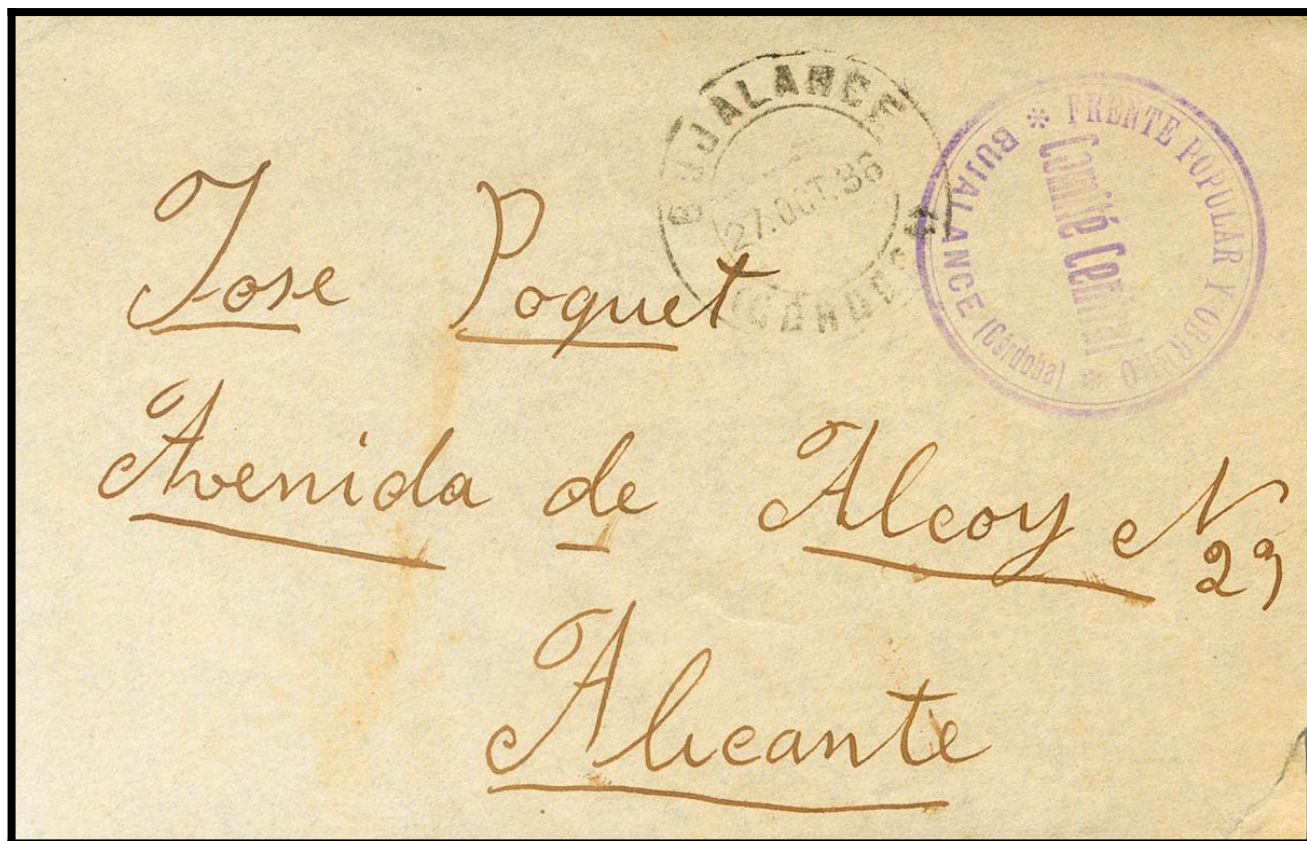 BUJALANCE
27.OCT.36
(CORDOBA)
* FRENTE POPULAR Y OBRERO *
BUJALANCE (Córdoba)
Comité Central
Jose Poquet
Avenida de Alcoy N
29
Alicante